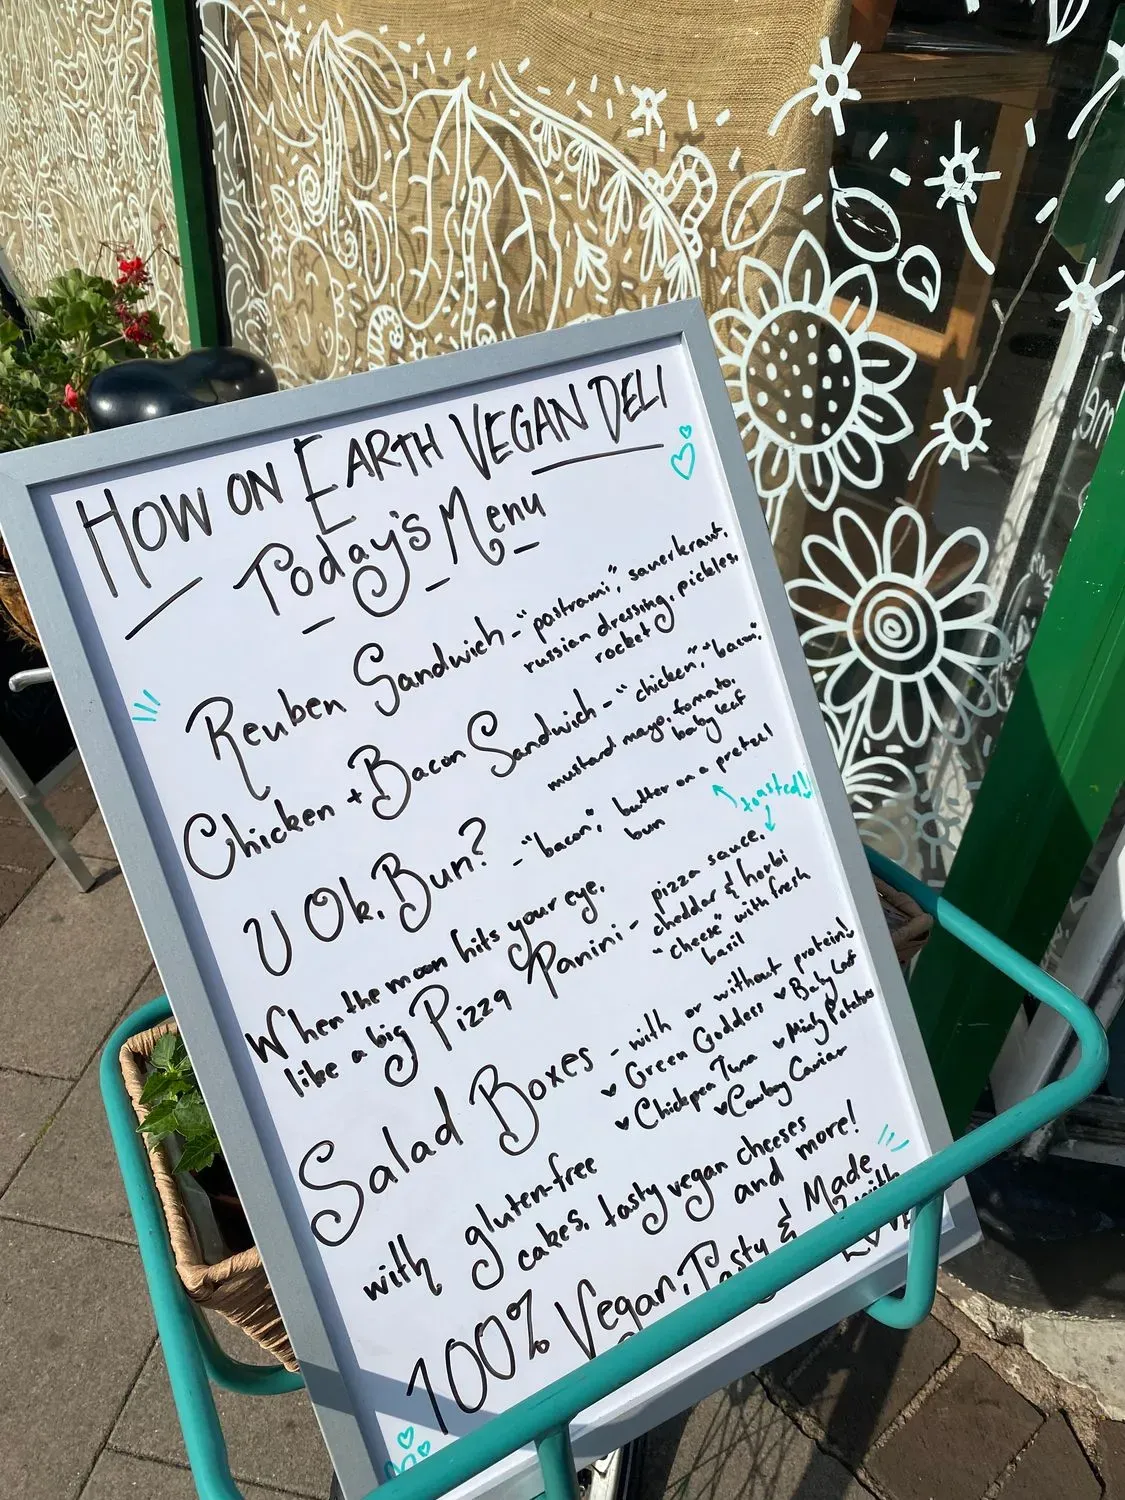 HOW ON EARTH VEGAN DELI
Today's Menu
Reuben Sandwich - "pastrami", sauerkraut,
russian dressing, pickles,
rocket
Chicken + Bacon Sandwich - "chicken", "bacon",
mustard mayo, tomato,
baby leaf
U Ok, Bun? - "bacon", butter on a pretzel
bun
toasted!
When the moon hits your eye,
like a big Pizza Panini - pizza sauce,
cheddar & herbi
"cheese" with fresh
basil
Salad Boxes - with or without protein!
♥ Green Goddess ♥ Baby Leaf
♥ Chickpea Tuna ♥ Minty Potatoes
♥ Cowboy Caviar
with gluten-free
cakes, tasty vegan cheeses
and more!
100% Vegan, Tasty & Made
with
Love
me!